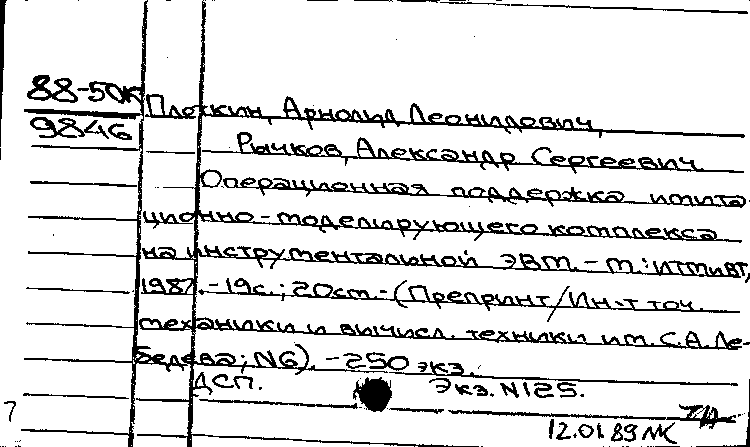 88-50К
9846
Плоткин, Арнольд Леонидович,
Рычков, Александр Сергеевич
Операционная поддержка имита-
ционно-моделирующего комплекса
на инструментальной ЭВМ. - М.: ИТМиВТ,
1987. - 19с.; 20см. - (Препринт/Ин-т точ.
механики и вычисл. техники им. С.А. Ле-
бедева; N6). - 250 экз.
ДСП. Экз. N125.
7
12.01.89